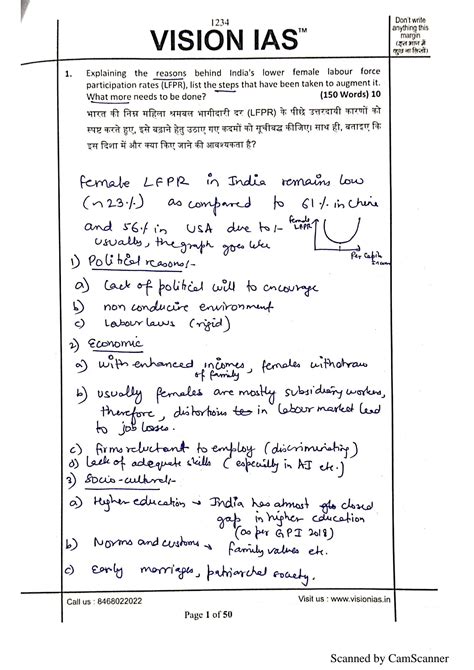 1234
VISION IAS™
Don't write
anything this
margin
(इस भाग में
कुछ ना लिखें)
1. Explaining the reasons behind India's lower female labour force
participation rates (LFPR), list the steps that have been taken to augment it.
What more needs to be done? (150 Words) 10
भारत की निम्न महिला श्रमबल भागीदारी दर (LFPR) के पीछे उत्तरदायी कारणों को
स्पष्ट करते हुए, इसे बढ़ाने हेतु उठाए गए कदमों को सूचीबद्ध कीजिए। साथ ही, बताइए कि
इस दिशा में और क्या किए जाने की आवश्यकता है?
Female LFPR in India remains low
(~23%) as compared to 61% in China
and 56% in USA due to :-
usually, the graph goes like
Female
LFPR
Per Capita
Income
1) Political reasons :-
a) Lack of political will to encourage
b) non conducive environment
c) Labour laws (rigid)
2) Economic
a) with enhanced incomes, females withdraw
of family
b) usually females are mostly subsidiary workers,
therefore, distortions in labour market lead
to job losses.
c) firms reluctant to employ (discriminating)
d) Lack of adequate skills (especially in AI etc.)
3) Socio-cultural :-
a) Higher education → India has almost closed
gap in higher education
(as per GPI 2018)
b) Norms and customs → family values etc.
c) Early marriages, patriarchal society.
Call us : 8468022022
Visit us : www.visionias.in
Page 1 of 50
Scanned by CamScanner